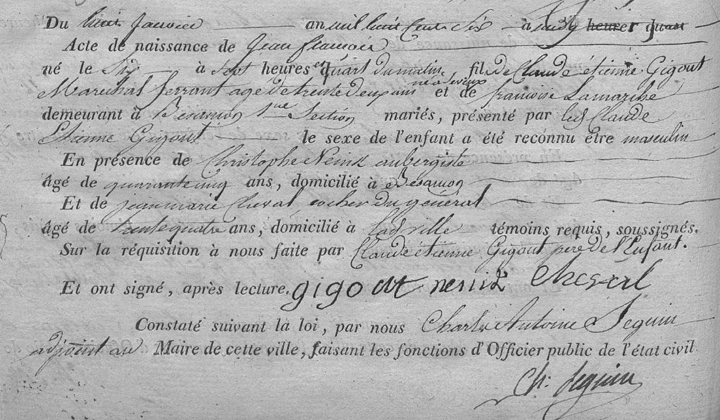 Du huit Janvier an mil huit Cent Six à midy heures quart
Acte de naissance de Jean françois
né le Six à Sept heures et quart du matin fils de Claude étienne Gigout
Marechal ferrant agé de trente deux ans et de françoise Lamarche
demeurant à Besançon Section mariés, présenté par led Claude
Etienne Gigout le sexe de l'enfant a été reconnu être masculin
En présence de Christophe Nenix aubergiste
âgé de quarante cinq ans, domicilié à Besançon
Et de jean marie Cheval, cocher du général
âgé de trente quatre ans, domicilié à lad ville témoins requis, soussignés.
Sur la réquisition à nous faite par Claude étienne Gigout pere de l'Enfant.
Et ont signé, après lecture. gigout nenix Cheval
Constaté suivant la loi, par nous Charles Antoine Seguin
adjoint au Maire de cette ville, faisant les fonctions d'Officier public de l'état civil
Ch. Seguin